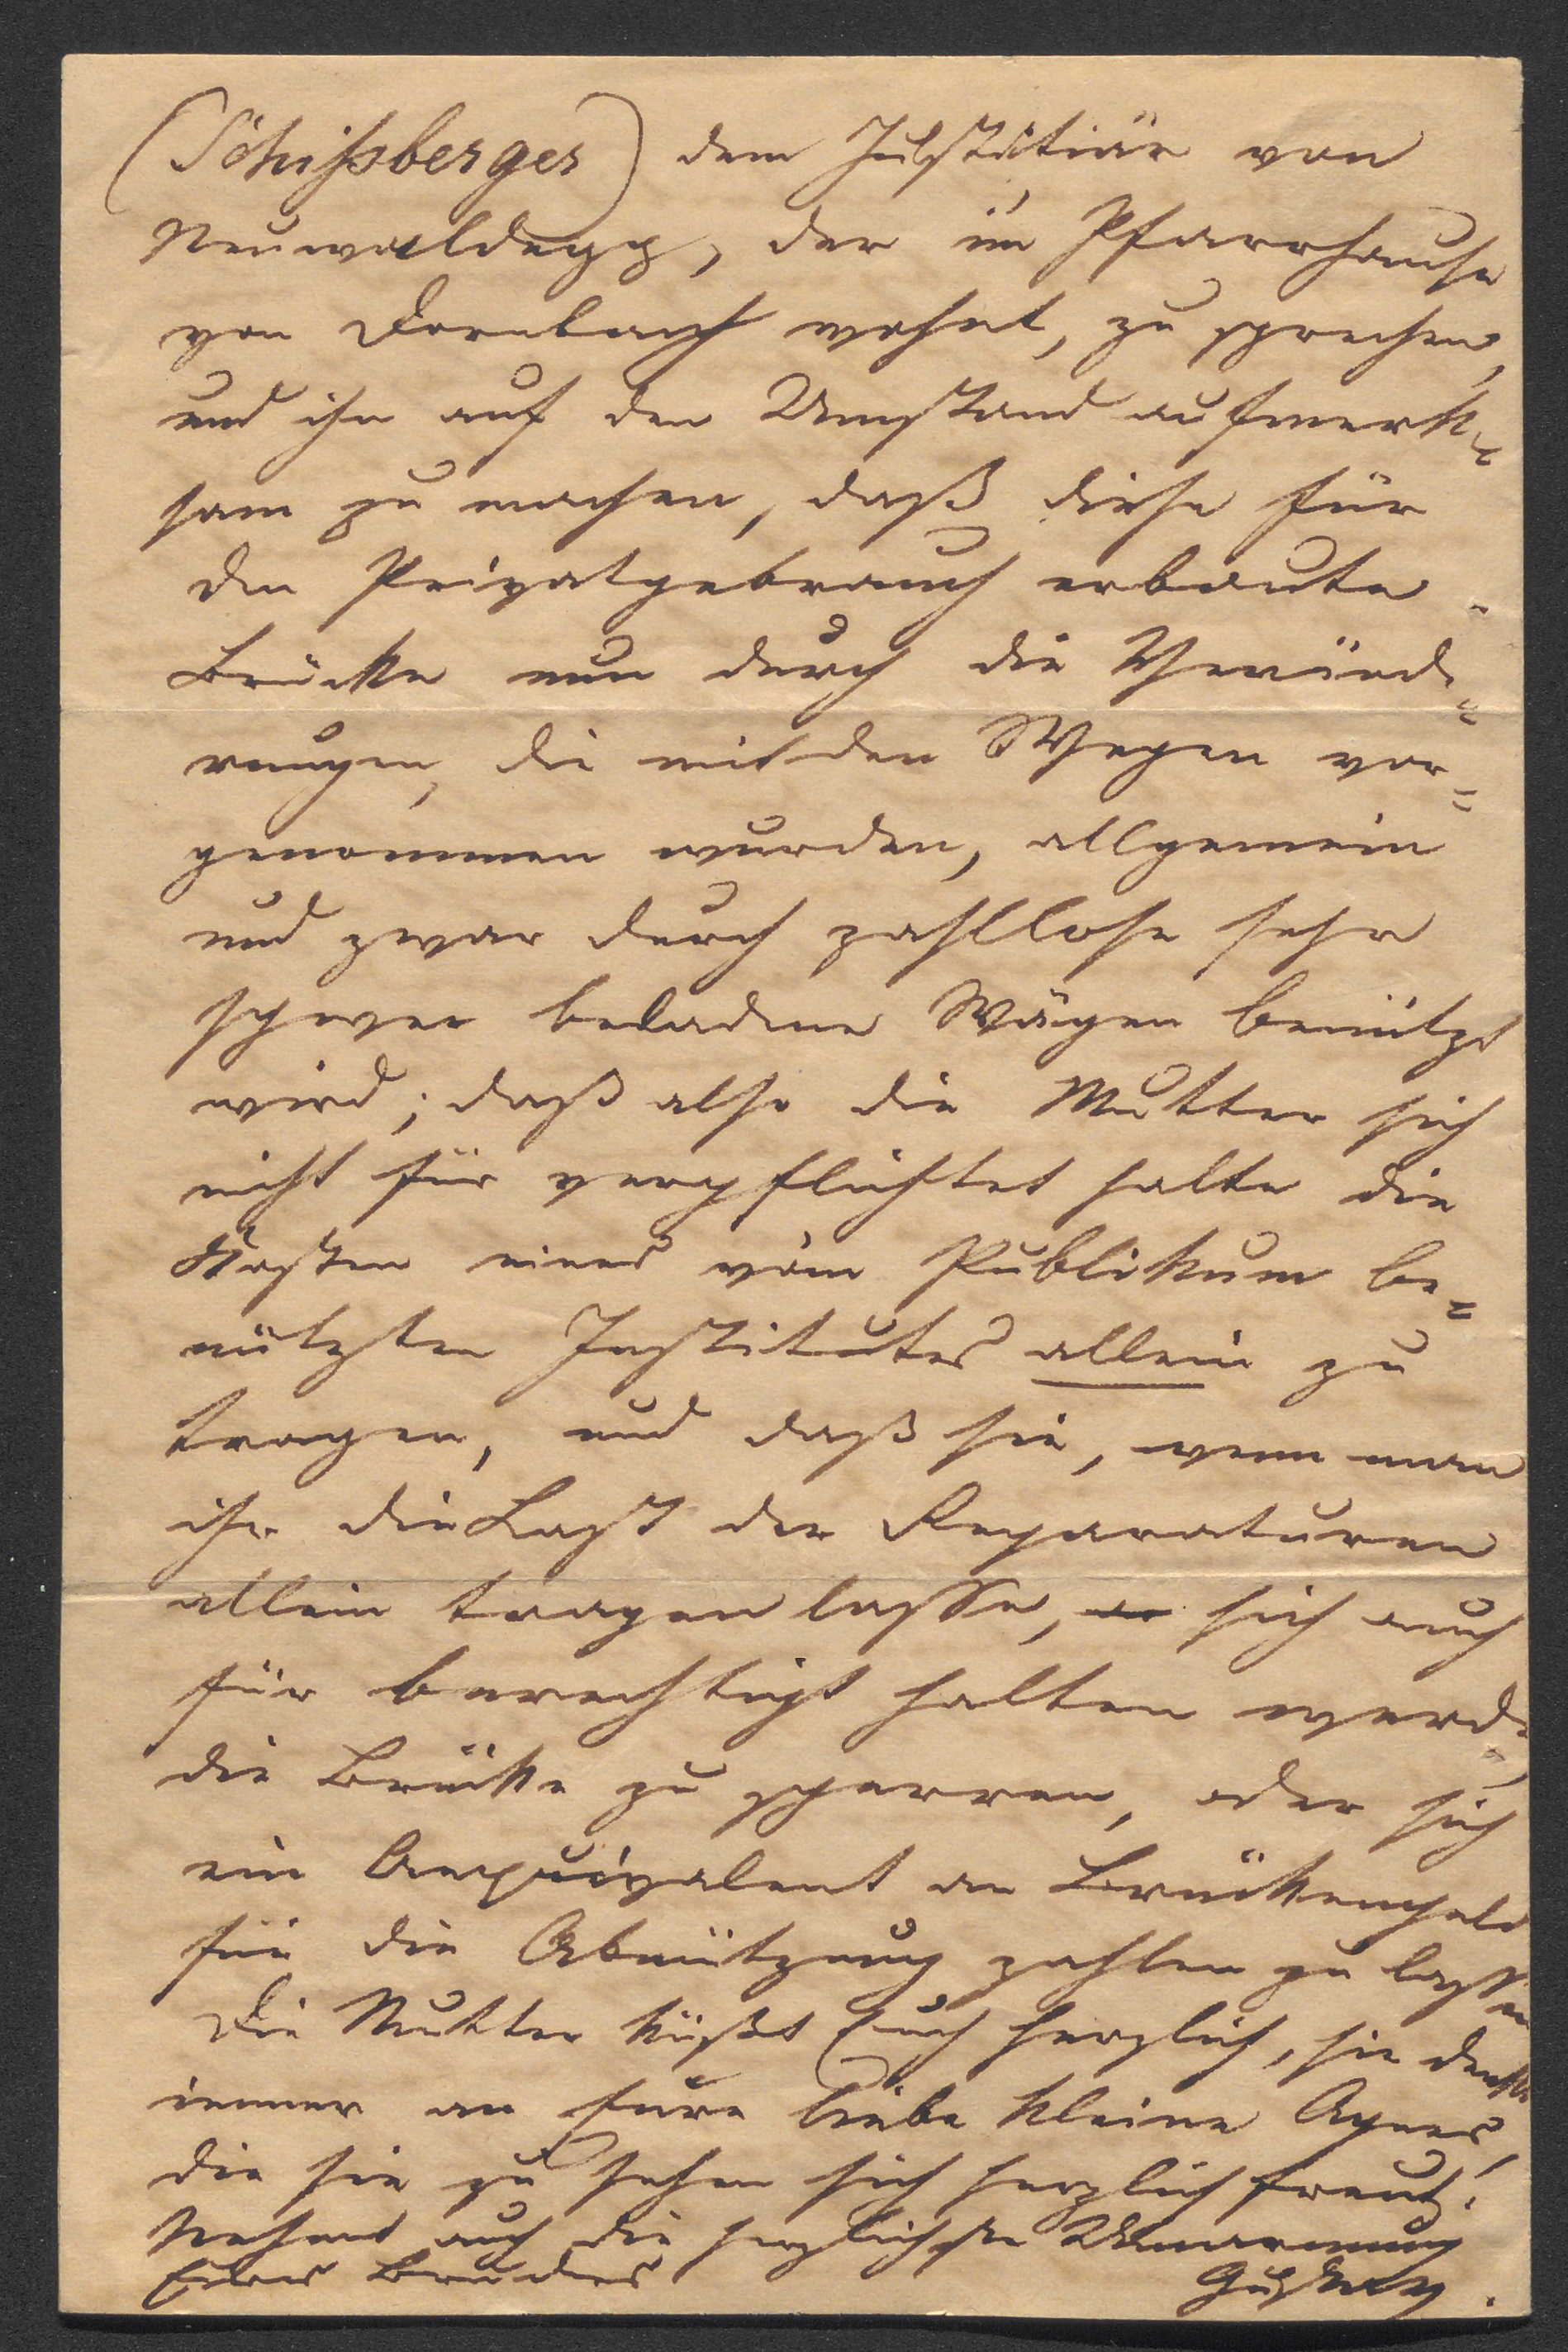 (Schißberger) dem Justitiär von
Neuwaldegg, der im Pfarrhause
von Dornbach wohnt, zu sprechen,
und ihn auf den Umstand aufmerk=
sam zu machen, daß diese für
den Privatgebrauch erbaute
Brücke nun durch die Verände=
rungen, die mit den Wegen vor=
genommen wurden, allgemein
und zwar durch zahllose sehr
schwer beladene Wägen benützt
wird; daß also die Mutter sich
nicht für verpflichtet halte die
Kosten eines vom Publikum be=
nützten Institutes allein zu
tragen, und daß sie, wenn man
ihr die Last der Reparaturen
allein tragen lasse, sich auch
für berechtigt halten werde,
die Brücke zu sperren, oder sich
ein Aequivalent an Brückengeld
für die Abnützung zahlen zu lassen
Die Mutter küßt Euch herzlich, sie denkt
immer an Eure liebe kleine Agnes,
die sie zu sehen sich herzlich freut!
Nehmt auch die herzlichste Umarmung
Eures Bruders Gustav.